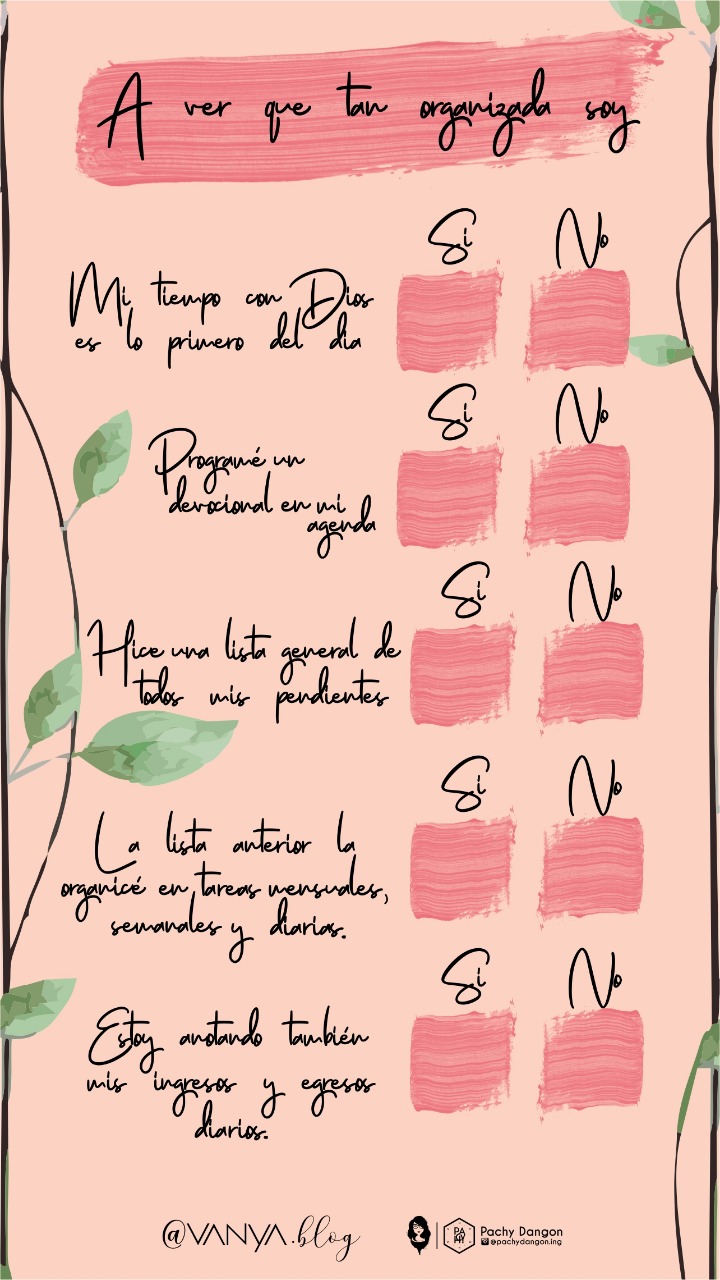 A ver que tan organizada soy
Si No
Mi tiempo con Dios
es lo primero del dia
Si No
Programé un
devocional en mi
agenda
Si No
Hice una lista general de
todos mis pendientes
Si No
La lista anterior la
organicé en tareas mensuales,
semanales y diarias.
Si No
Estoy anotando también
mis ingresos y egresos
diarios.
@VANYA.blog
PACHY
Pachy Dangon
@pachydangon.ing